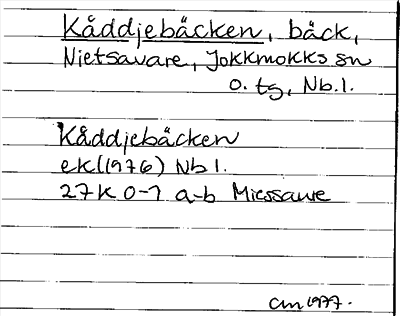 Kåddjebäcken, bäck,
Nietsavare, Jokkmokks sn
o. tg, Nb.l.
Kåddjebäcken
ek(1976) Nb l.
27K 0-1 a-b Miessavre
CM 1977.